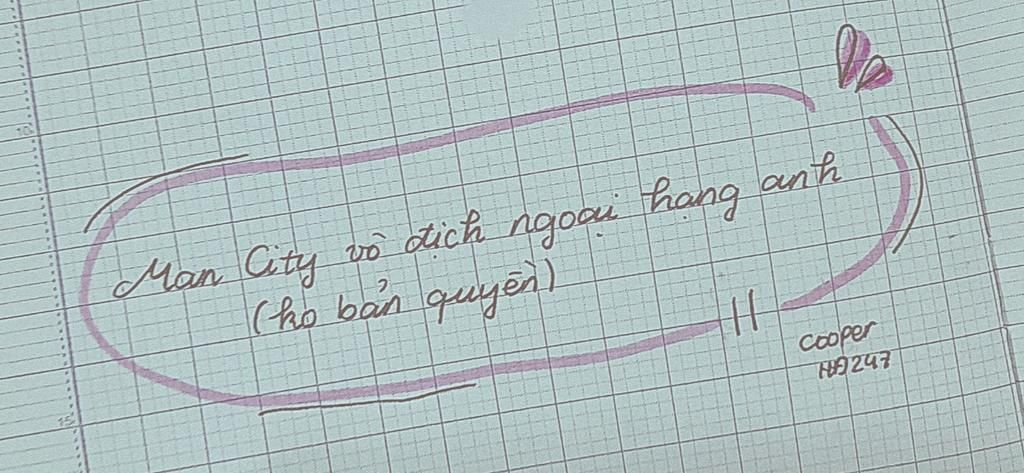 Man City vô địch ngoại hạng anh
(ko bản quyền)
cooper
HĐ247
10
15